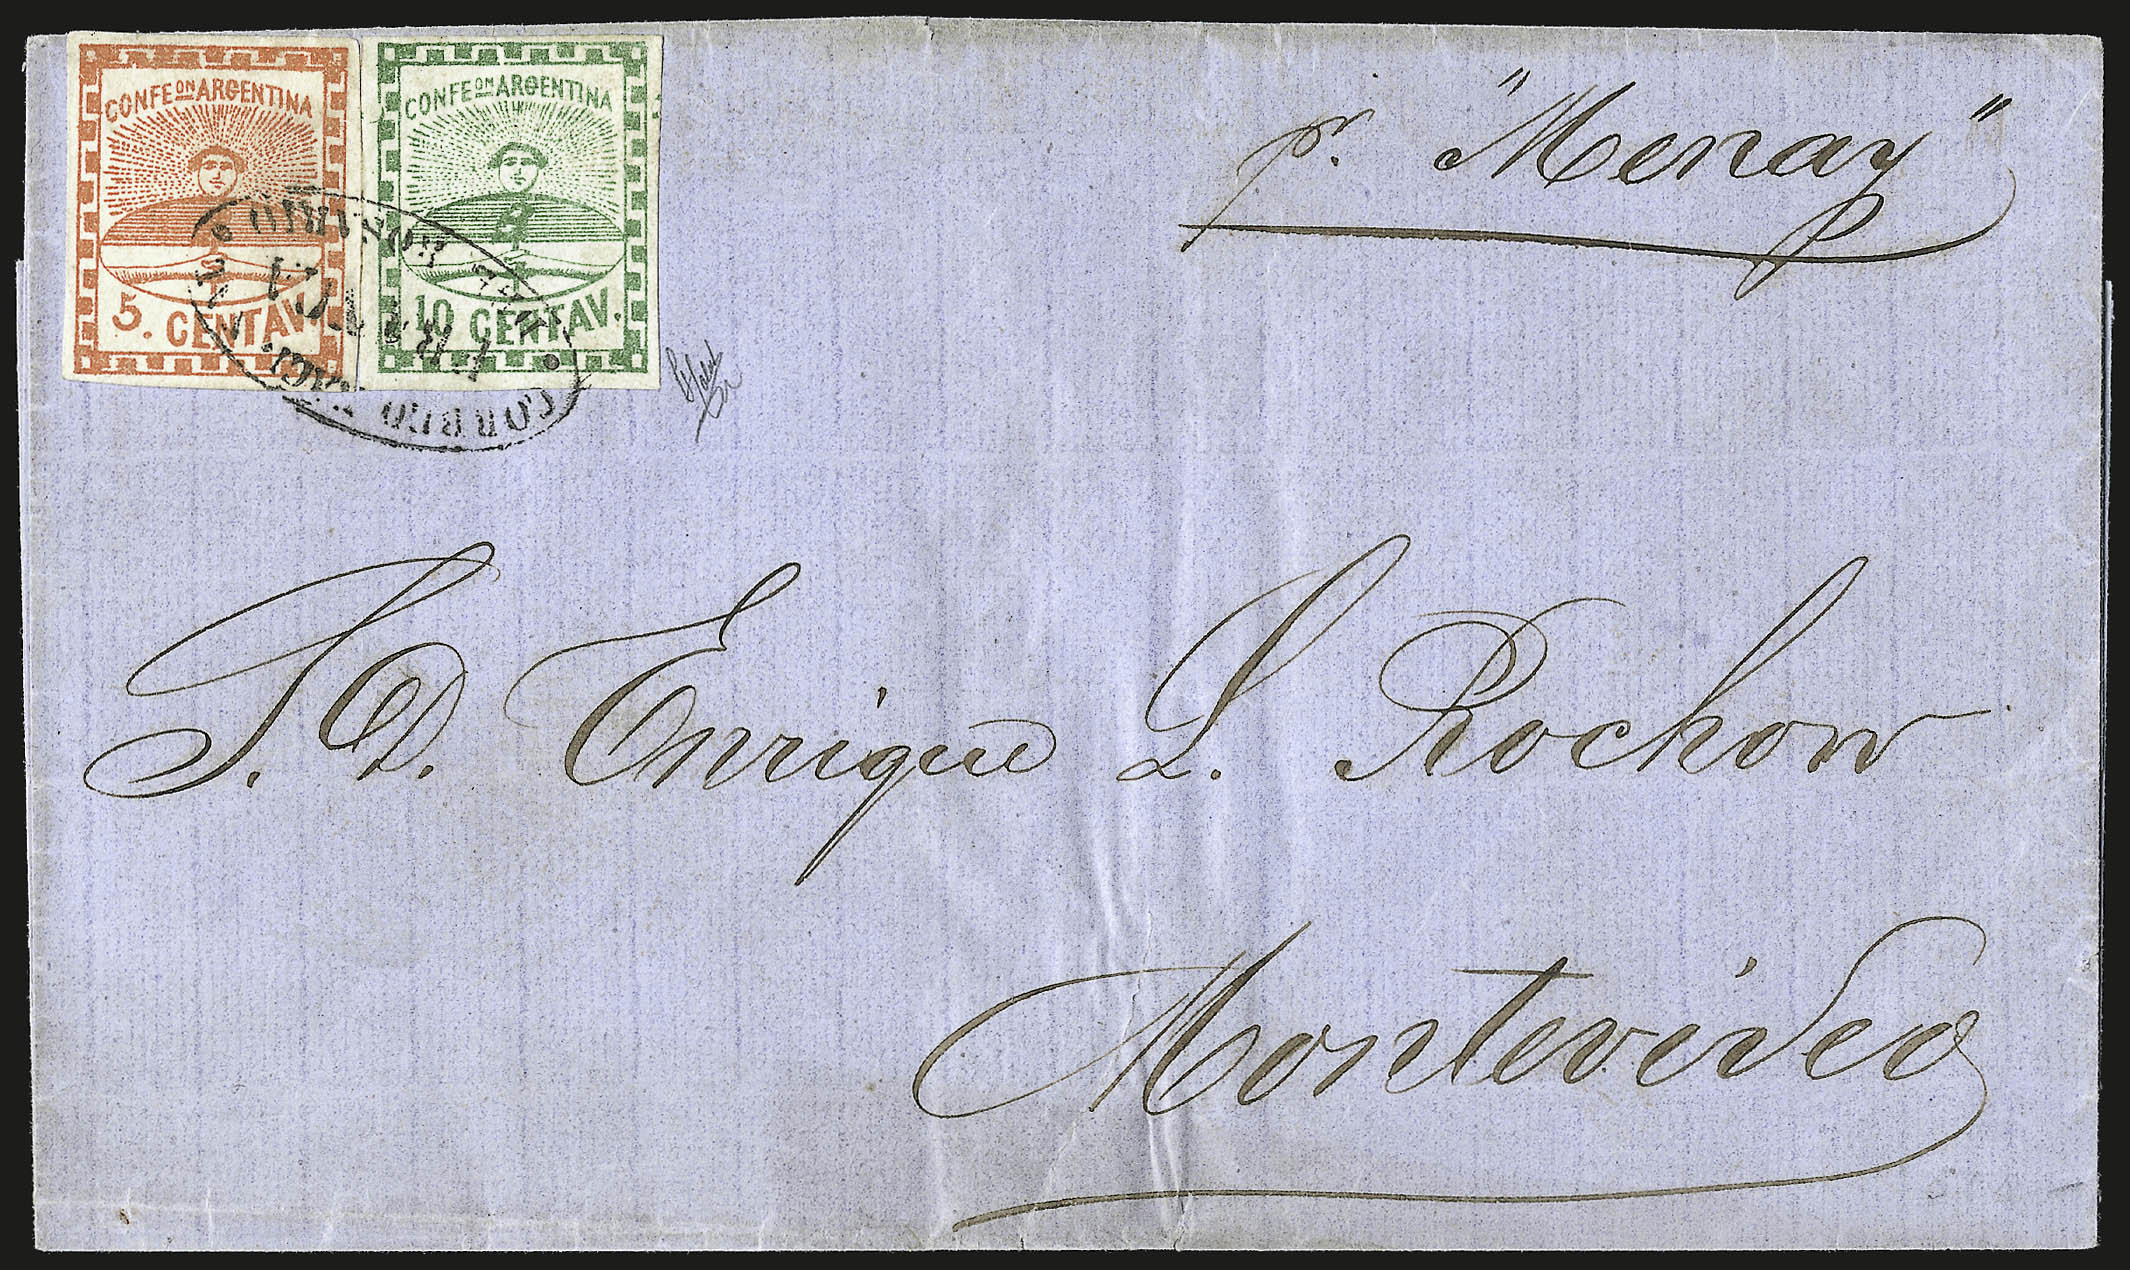 CONFEON ARGENTINA
5. CENTAV.
CONFEON ARGENTINA
10 CENTAV.
CORREO NACL. DEL ROSARIO
FRANCA
pr. "Menay"
S. D. Enrique L. Rochow
Montevideo